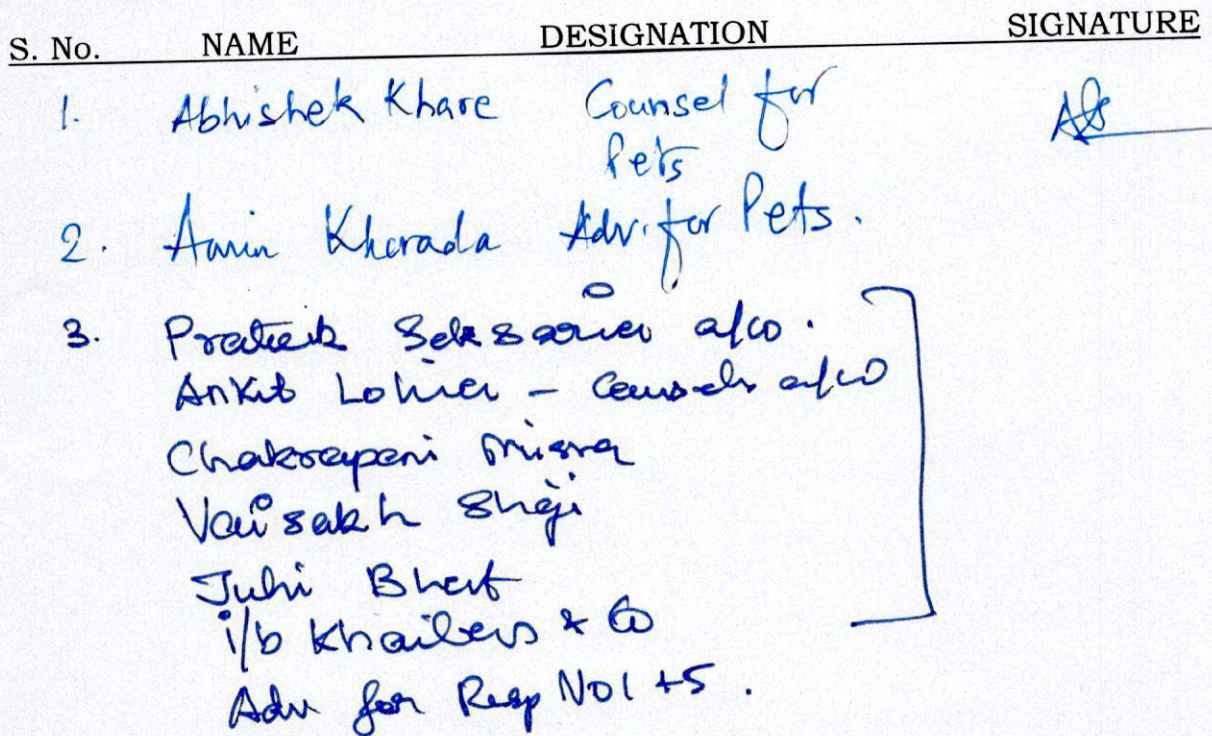 S. No. NAME DESIGNATION SIGNATURE
1. Abhishek Khare Counsel for
Pets
2. Amin Kherada Adv. for Pets.
3. Prateek Seksaria a/w.
Ankit Lohia - Counsels a/w
Chakrapani Misra
Vaisakh Shaji
Juhi Bhat
i/b Khaitan & Co
Adv for Resp No 1 + 5.